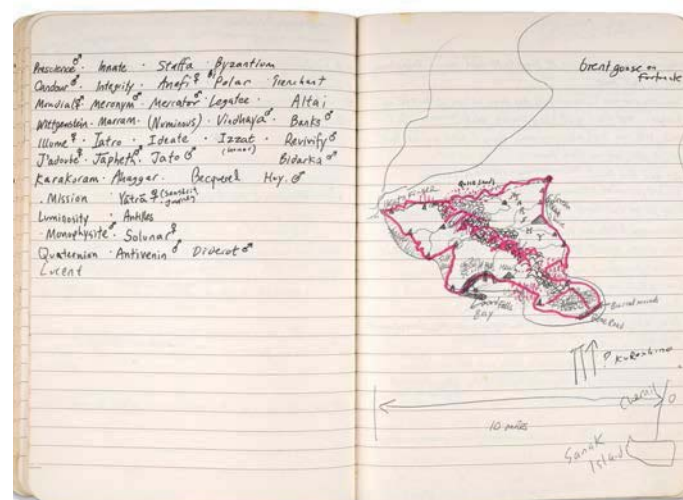 Prescience ♂ · Innate · Staffa · Byzantium
Candour ♂ · Integrity · Anafi ♀ · Polar · Trenchant
Mundial ♀ Meronym ♂ Mercator ♂ Legatee · Altai
Wittgenstein · Marram · (Numinous) · Vindhaya ♂ · Banks ♂
Illume ♀ · Iatro · Ideate · Izzat · Revivify ♂
J'adoube ♀ · Japheth ♂ · Jato ♂ Bidarka ♂
Karakoram · Ahaggar · Becquerel Hoy ♂
· Mission · Yātrā ♀
Luminosity · Antilles
· Monophysite ♂ · Solunar ♀
Quaternion · Antivenin ♂ Diderot ♂
Lucent
brent goose on
Quick Sands
Bay
Burial mound
? Kuroshima
10 miles
Sanak
Island